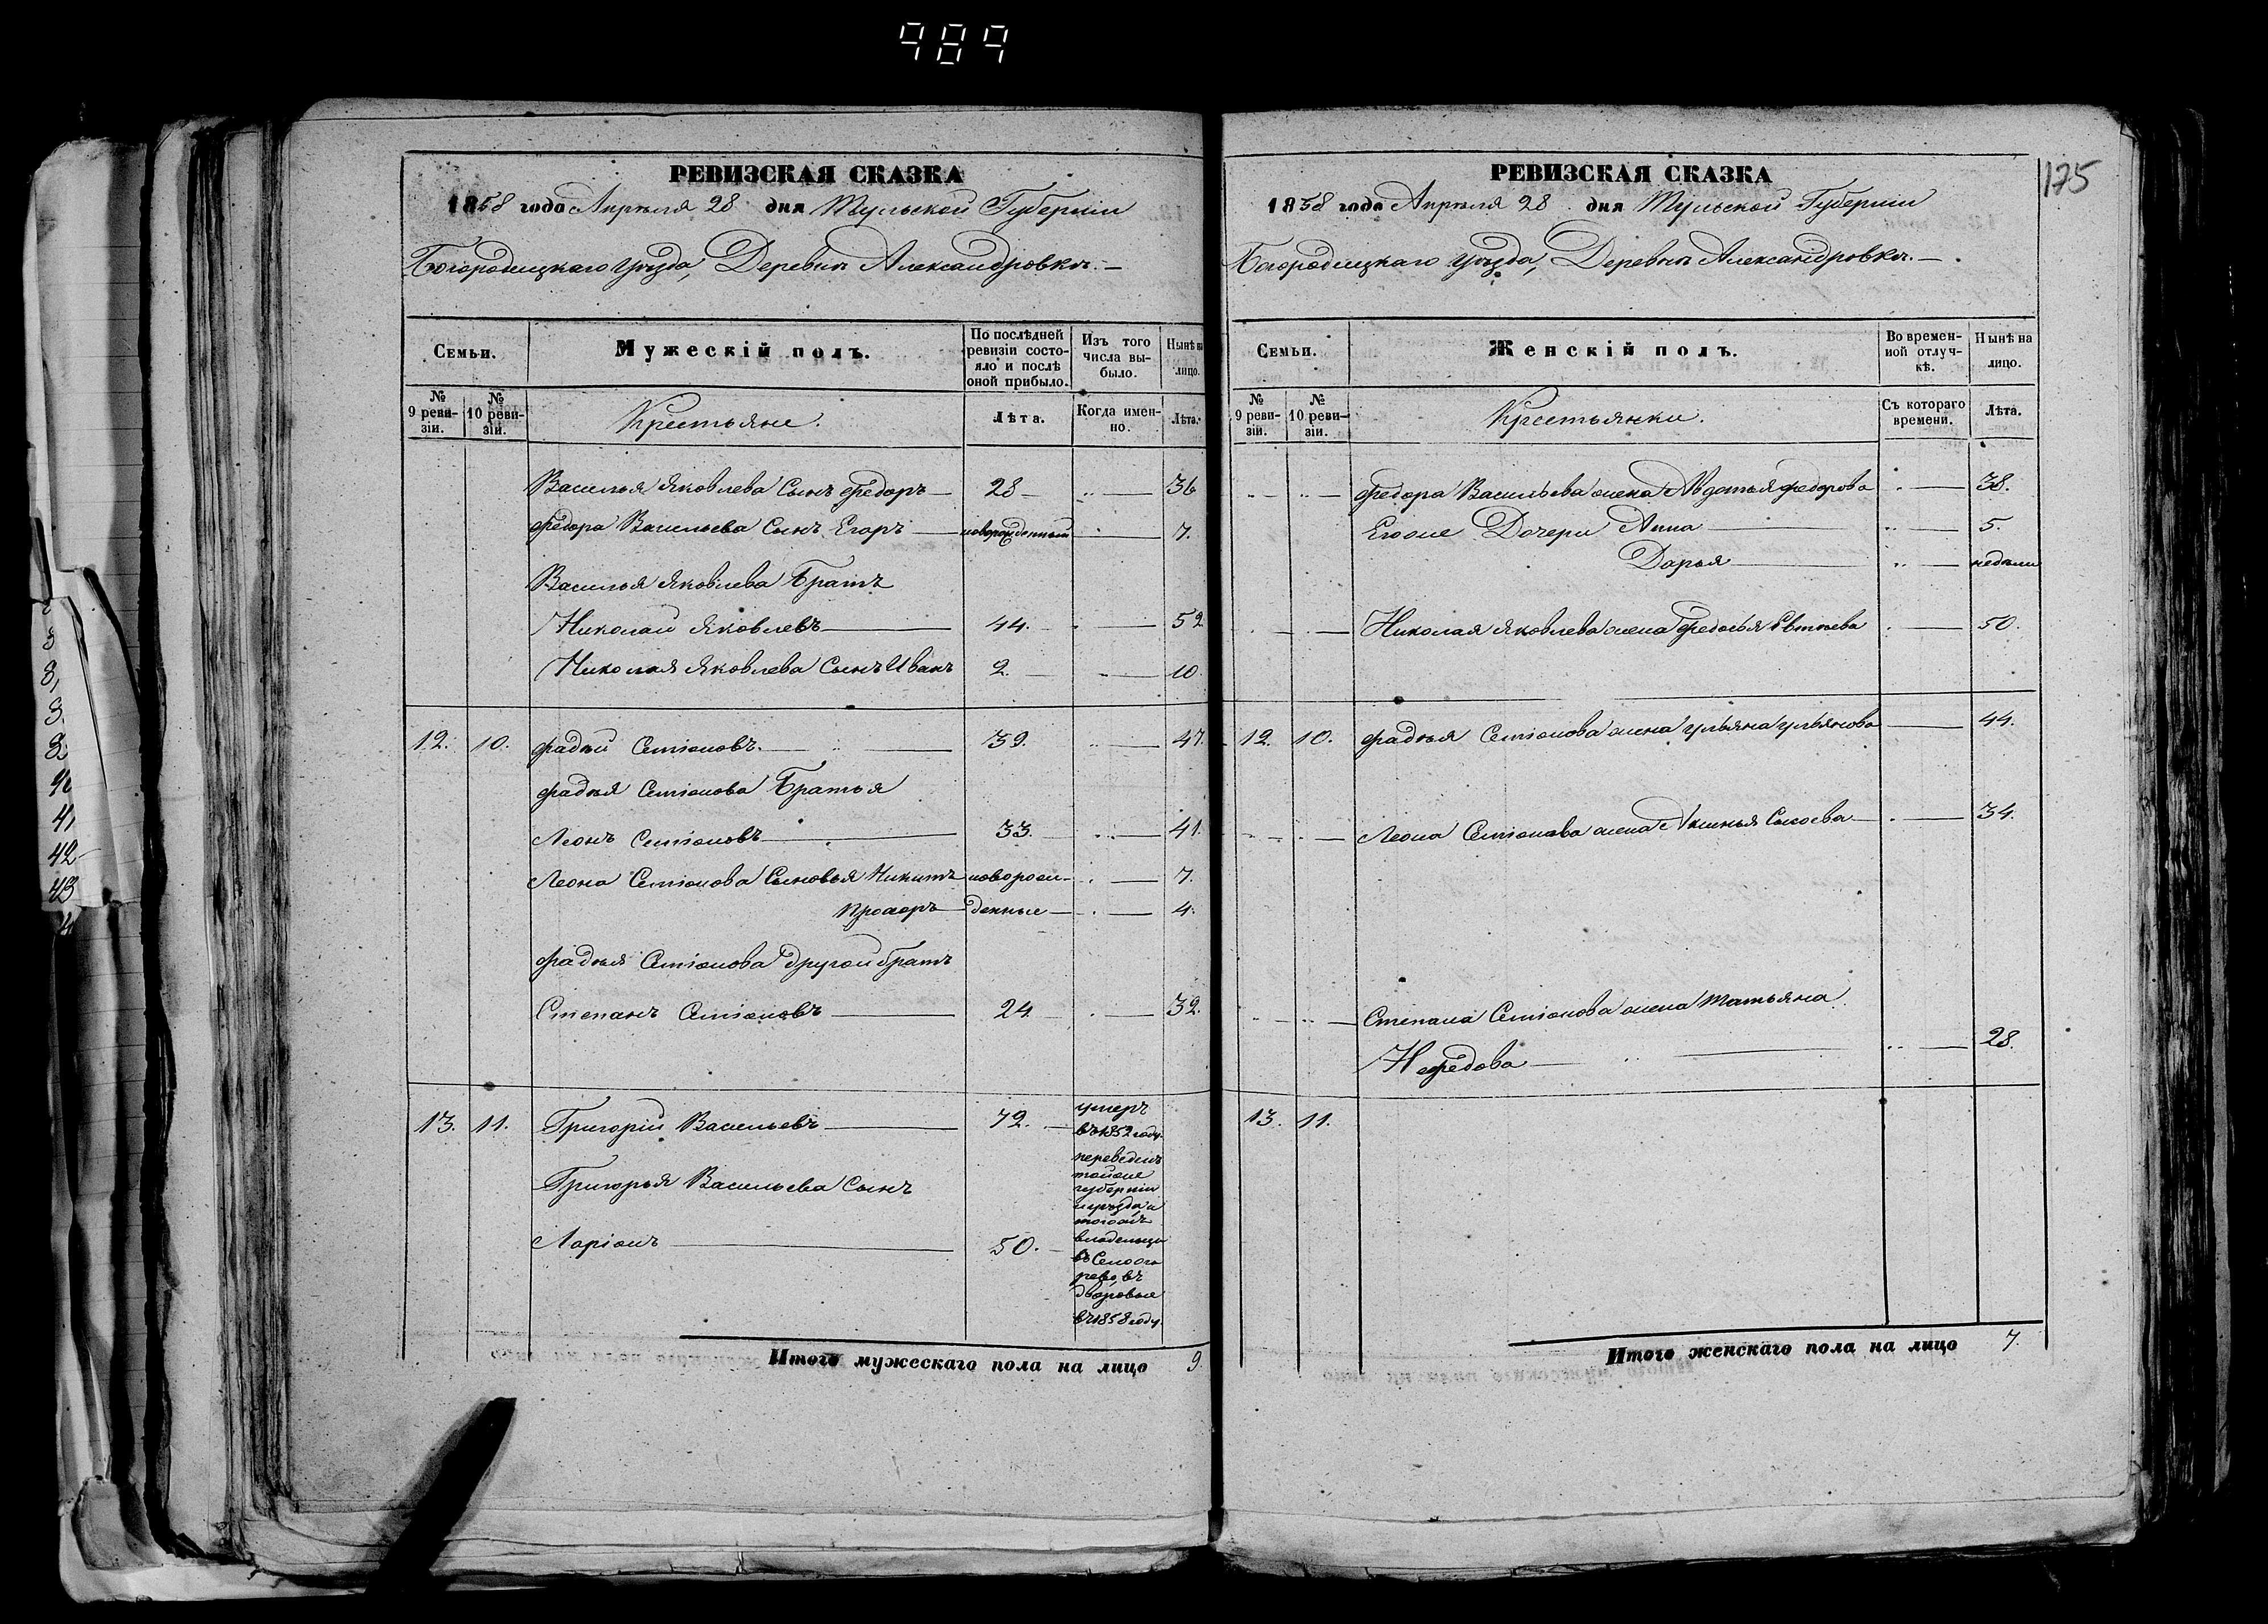 484
РЕВИЗСКАЯ СКАЗКА
1858 года Апрѣля 28 дня Тульской Губерніи
Богородицкаго Уѣзда, Деревнѣ Александровкѣ.
Семьи.
Мужескій полъ.
По послѣдней ревизіи состояло и послѣ оной прибыло.
Изъ того числа выбыло.
Нынѣ на лицо.
№ 9 ревизіи.
№ 10 ревизіи.
Крестьяне.
Лѣта.
Когда именно.
Лѣта.
Василья Яковлева Сынъ Федоръ 28 36
Федора Васильева Сынъ Егоръ новорожденный 7.
Василья Яковлева Братъ
Николай Яковлевъ 44. 52
Николая Яковлева Сынъ Иванъ 2. 10.
12. 10. Фадѣй Семіоновъ. 39. 47.
Фадѣя Семіонова Братья
Леонъ Семіоновъ 33. 41.
Леона Семіонова Сыновья Никита новорож- 7.
Прохоръ денные 4.
Фадѣя Семіонова другой братъ
Степанъ Семіоновъ 24. 32.
13. 11. Григорій Васильевъ 72. умеръ
въ 1852 году.
Григорья Васильева Сынъ
Ларіонъ 50.
переведенъ
тойже
губерніи
и уѣзда и
тогожъ
владельца
въ Село
въ
дворовые
въ 1858 году.
Итого мужескаго пола на лицо 9.
175
РЕВИЗСКАЯ СКАЗКА
1858 года Апрѣля 28 дня Тульской Губерніи
Богородицкаго Уѣзда, Деревнѣ Александровкѣ.
Семьи.
Женскій полъ.
Во временной отлучкѣ.
Нынѣ на лицо.
№ 9 ревизіи.
№ 10 ревизіи.
Крестьянки.
Съ котораго времени.
Лѣта.
Федора Васильева жена Авдотья Федорова 38.
Егоже Дочери Анна 5.
Дарья недѣли
Николая Яковлева жена Федосья 50.
12. 10. Фадѣя Семіонова жена Ульяна Ульянова 44.
Леона Семіонова жена Аксинья Сысоева 34.
Степана Семіонова жена Татьяна
Нефедова 28.
13. 11.
Итого женскаго пола на лицо 7.
3
3
8,
3.
42
43